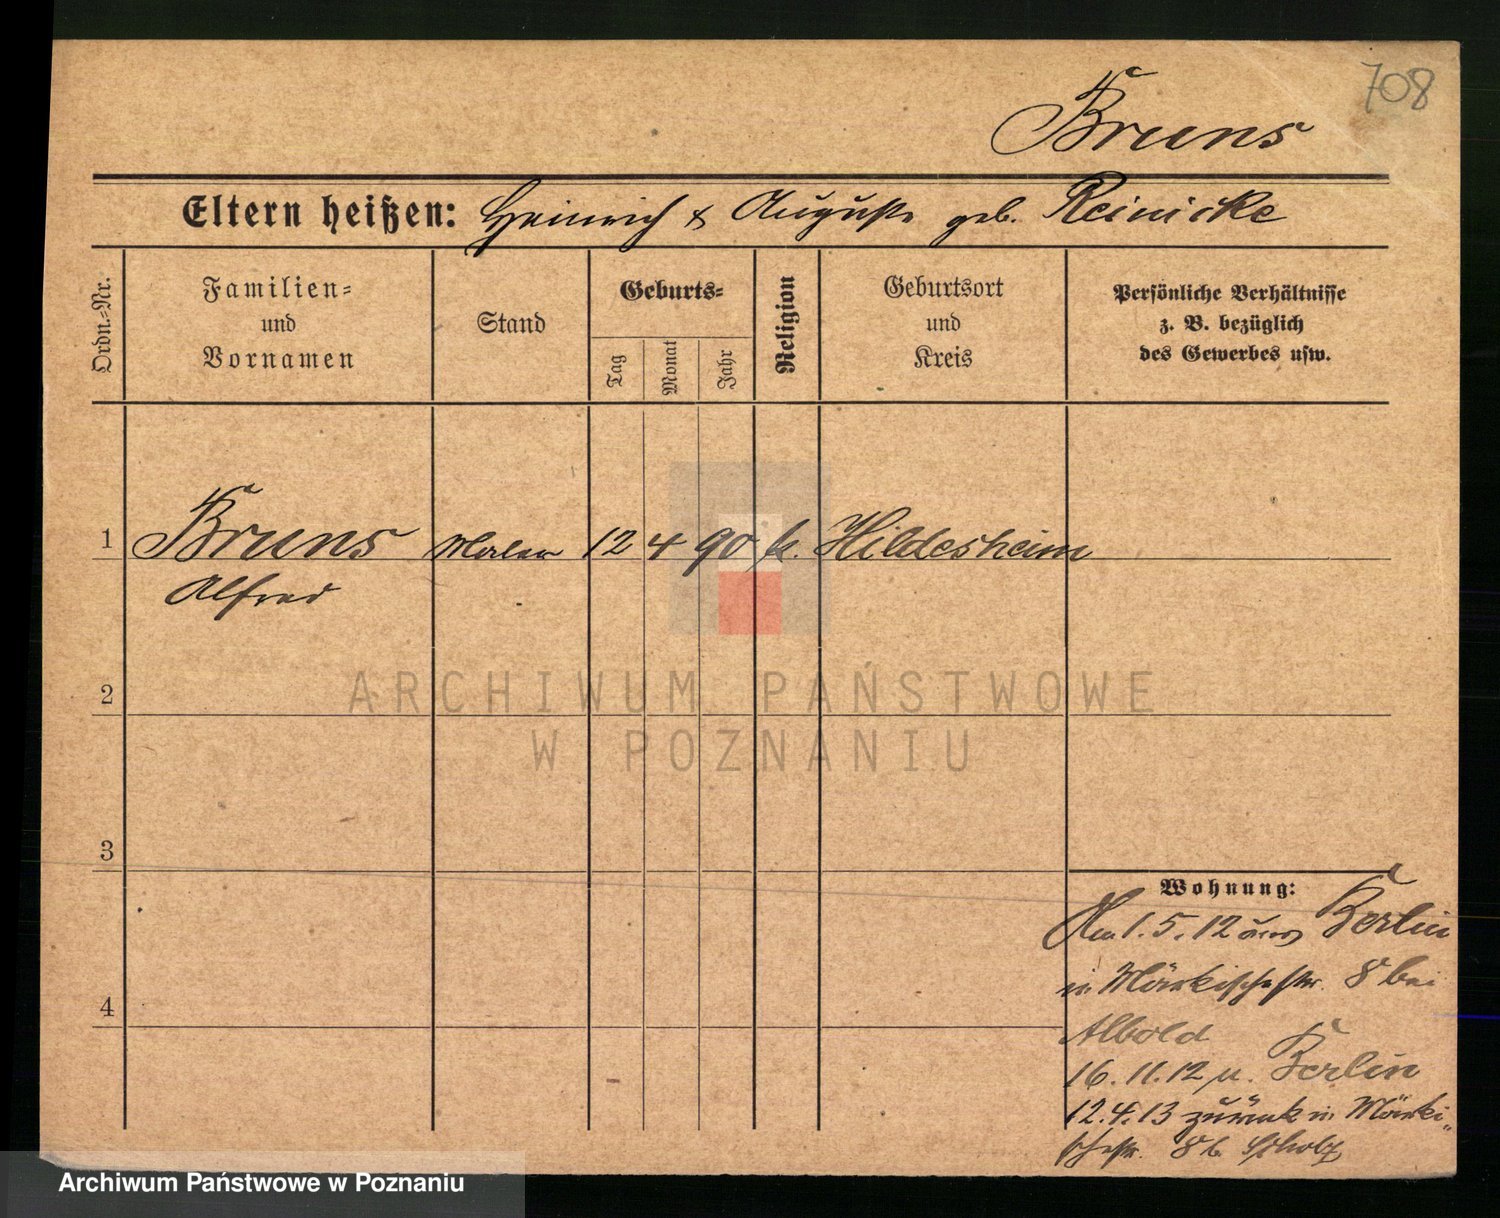 708
Bruns
Eltern heißen: Heinrich & Auguste geb. Reinicke
Ordn.-Nr.
Familien-
und
Vornamen
Stand
Geburts-
Tag
Monat
Jahr
Religion
Geburtsort
und
Kreis
Persönliche Verhältnisse
z. B. bezüglich
des Gewerbes usw.
1 Bruns Maler 12 4 90 k. Hildesheim
Alfred
2
3
4
Wohnung:
Am 1. 5. 12 aus Berlin
in Märkischestr. 8 bei
Albold
16. 11. 12 n. Berlin
12. 4. 13 zurück in Märki-
schestr. 8 b. Scholz
ARCHIWUM PAŃSTWOWE
W POZNANIU
Archiwum Państwowe w Poznaniu